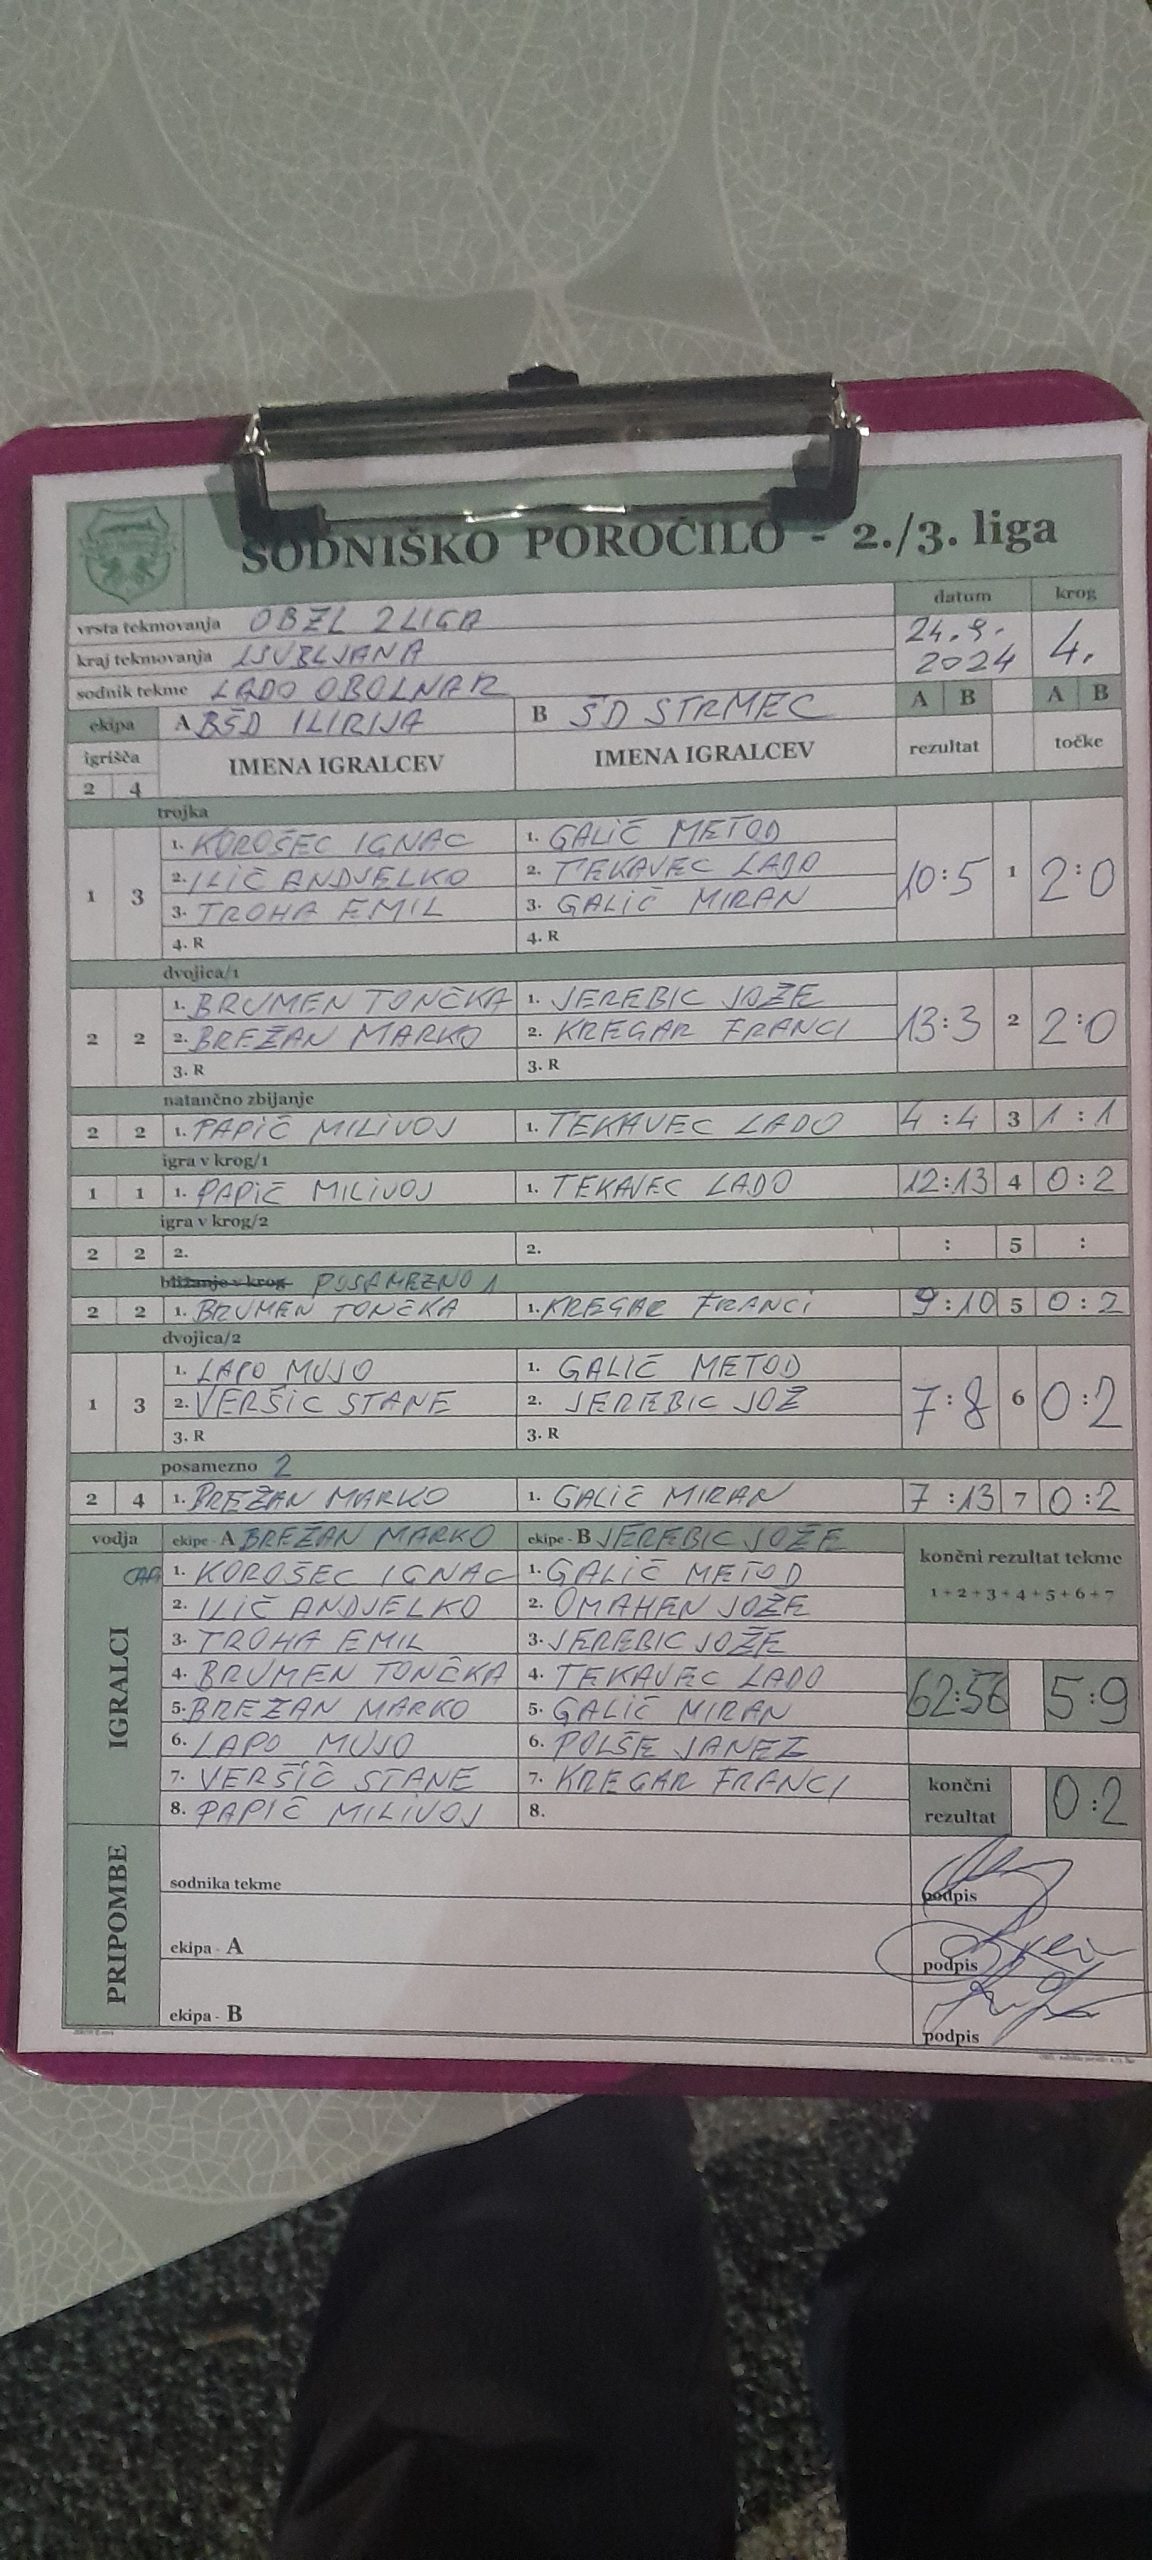 SODNIŠKO POROČILO - 2./3. liga
vrsta tekmovanja OBZL 2 LIGA datum krog
kraj tekmovanja LJUBLJANA 24.9. 2024 4.
sodnik tekme LADO OBOLNAR A B A B
ekipa A BŠD ILIRIJA B ŠD STRMEC
igrišča IMENA IGRALCEV IMENA IGRALCEV rezultat točke
2 4
trojka
1. KOROŠEC IGNAC 1. GALIČ METOD
1 3 2. ILIČ ANDJELKO 2. TEKAVEC LADO 10:5 1 2:0
3. TROHA EMIL 3. GALIČ MIRAN
4. R 4. R
dvojica/1
1. BRUMEN TONČKA 1. JEREBIC JOŽE
2 2 2. BREŽAN MARKO 2. KREGAR FRANCI 13:3 2 2:0
3. R 3. R
natančno zbijanje
2 2 1. PAPIČ MILIVOJ 1. TEKAVEC LADO 4:4 3 1:1
igra v krog/1
1 1 1. PAPIČ MILIVOJ 1. TEKAVEC LADO 12:13 4 0:2
igra v krog/2
2 2 2. 2. : 5 :
bližanje v krog POSAMEZNO 1
2 2 1. BRUMEN TONČKA 1. KREGAR FRANCI 9:10 5 0:2
dvojica/2
1. LAPO MUJO 1. GALIČ METOD
1 3 2. VERŠIC STANE 2. JEREBIC JOŽ 7:8 6 0:2
3. R 3. R
posamezno 2
2 4 1. BREŽAN MARKO 1. GALIČ MIRAN 7:13 7 0:2
vodja ekipe - A BREŽAN MARKO ekipe - B JEREBIC JOŽE
končni rezultat tekme
1 + 2 + 3 + 4 + 5 + 6 + 7
IGRALCI
1. KOROŠEC IGNAC 1. GALIČ METOD
2. ILIČ ANDJELKO 2. OMAHEN JOŽE
3. TROHA EMIL 3. JEREBIC JOŽE
4. BRUMEN TONČKA 4. TEKAVEC LADO 62:56 5:9
5. BREŽAN MARKO 5. GALIČ MIRAN
6. LAPO MUJO 6. POLŠE JANEZ
7. VERŠIČ STANE 7. KREGAR FRANCI končni
8. PAPIČ MILIVOJ 8. rezultat 0:2
PRIPOMBE
sodnika tekme podpis
ekipa - A podpis
ekipa - B podpis